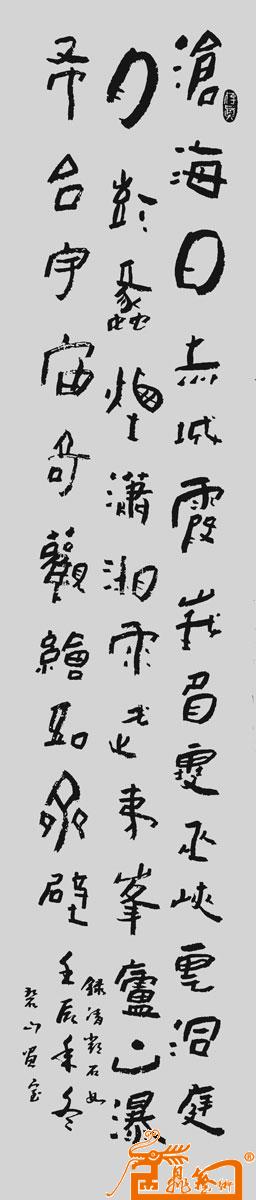 滄海日赤城霞峩眉雪巫峽雲洞庭
月彭蠡煙瀟湘雨武夷峯廬山瀑
布合宇宙奇觀繪吾齋壁
錄清鄧石如
壬辰年冬